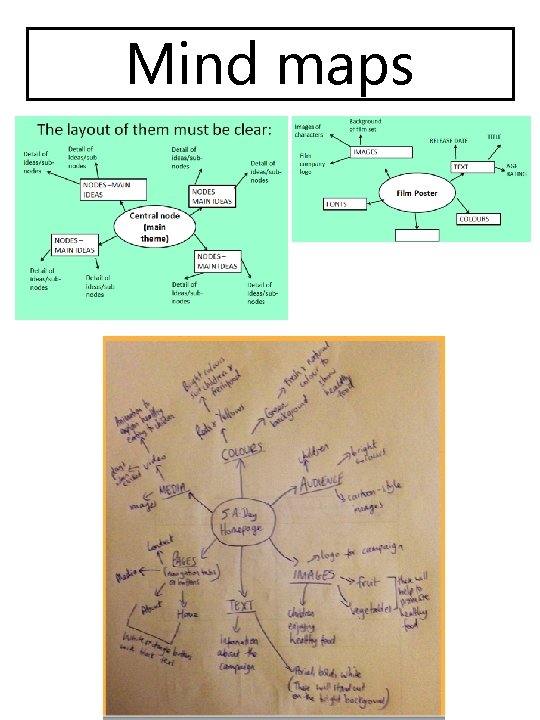 Mind maps
The layout of them must be clear:
Detail of
Ideas/sub-
nodes
Detail of
Ideas/sub
nodes
Detail of
ideas/sub-
nodes
Detail of
Ideas/sub-
nodes
NODES –MAIN
IDEAS
NODES
MAIN IDEAS
Central node
(main
theme)
NODES –
MAIN IDEAS
NODES –
MAIN IDEAS
Detail of
Ideas/sub-
nodes
Detail of
ideas/sub
nodes
Detail of
Ideas/sub-
nodes
Detail of
Ideas/sub-
nodes
Images of
characters
Background
of film set
RELEASE DATE
TITLE
Film
company
logo
IMAGES
TEXT
AGE
RATING
Film Poster
FONTS
COLOURS
Bright colours
children
Fresh & natural
colour to
show
healthy
food
Animation to
explain healthy
eating to children
Reds & Yellows
Green
background
COLOURS
video
MEDIA
images
children
bright
colours
AUDIENCE
cartoon-style
images
5 A Day
Homepage
Contact
PAGES
(navigation tabs
or buttons)
Media
About
Home
logo for campaign
IMAGES
fruit
vegetables
these will
help to
promote
healthy
food
children
enjoying
healthy food
TEXT
information
about the
campaign
white
(These will stand out
on the bright background)